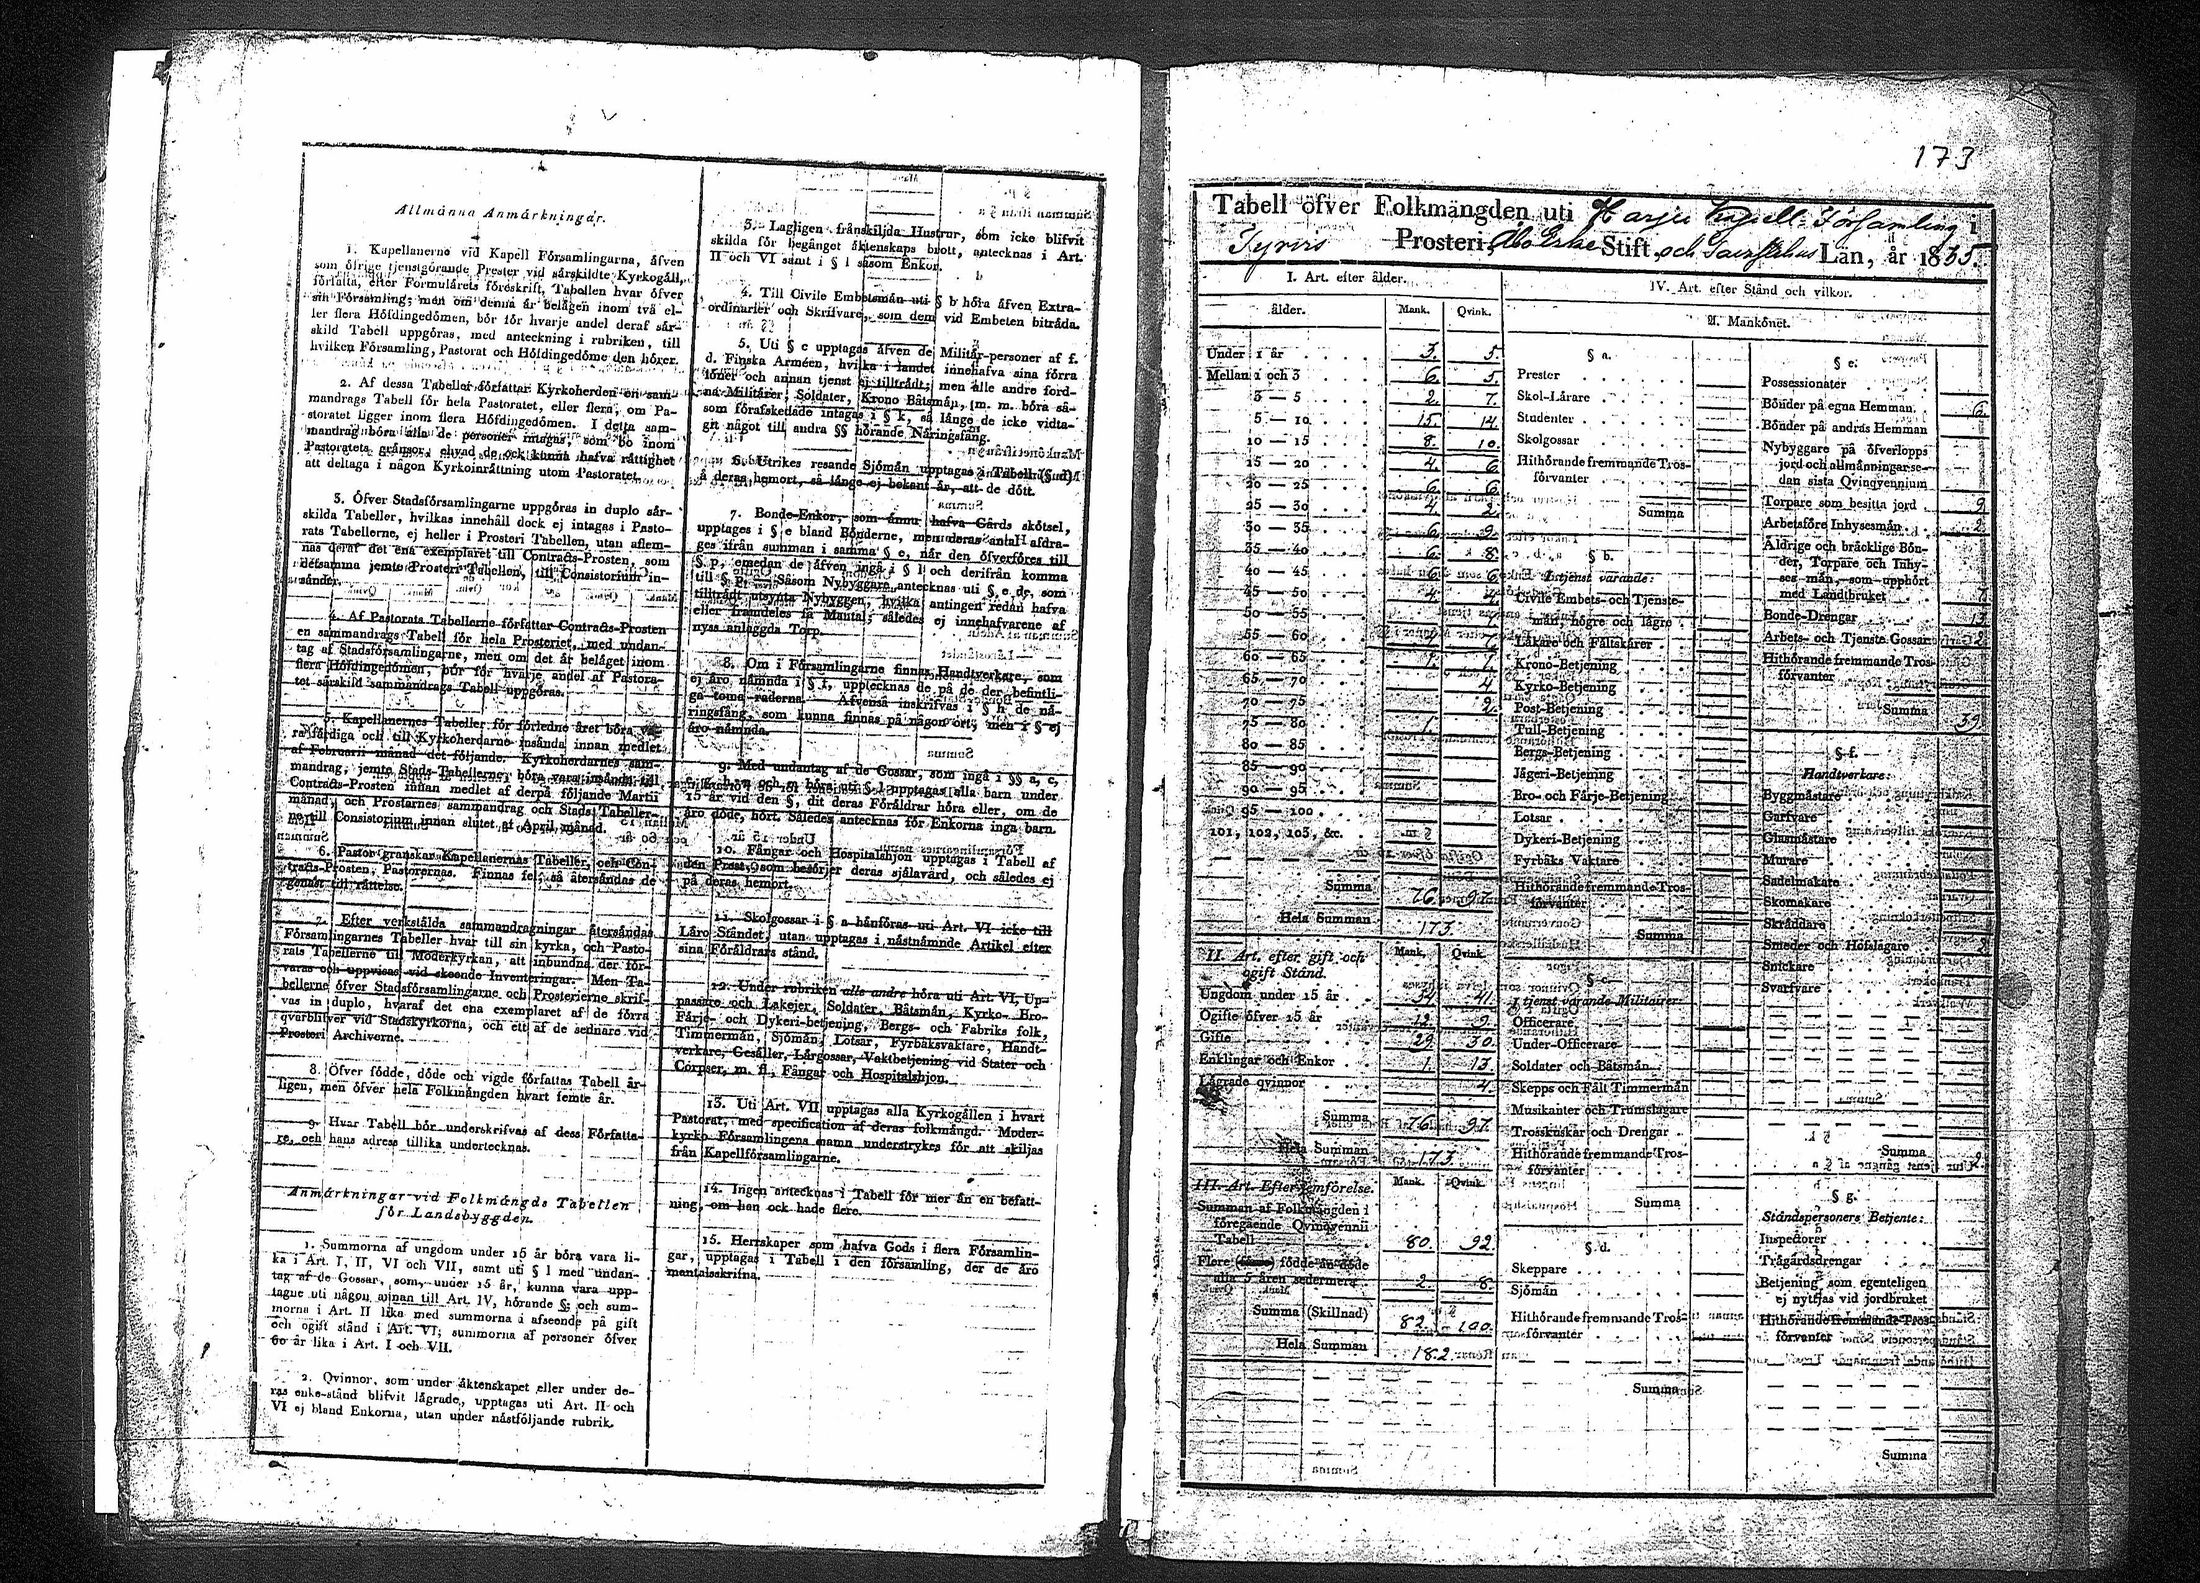 Allmänna Anmärkningar.
1. Kapellanerne vid Kapell Församlingarna, äfven
som öfrige tjenstgörande Prester vid särskildte Kyrkogäll,
författa, efter Formulärets föreskrift, Tabellen hvar öfver
sin Församling; men om denna är belägen inom två el-
ler flera Höfdingedömen, bör för hvarje andel deraf sär-
skild Tabell uppgöras, med anteckning i rubriken, till
hvilken Församling, Pastorat och Höfdingedöme den hörer.
2. Af dessa Tabeller författar Kyrkoherden en sam-
mandrags Tabell för hela Pastoratet, eller flera, om Pa-
storatet ligger inom flera Höfdingedömen. I detta sam-
mandrag böra alla de personer intagas, som bo inom
Pastoratets gränsor, ehvad de ock kunna hafva rättighet
att deltaga i någon Kyrkoinrättning utom Pastoratet.
3. Öfver Stadsförsamlingarne uppgöras in duplo sär-
skilda Tabeller, hvilkas innehåll dock ej intages i Pasto-
rats Tabellerne, ej heller i Prosteri Tabellen, utan aflem-
nas deraf det ena exemplaret till Contracts-Prosten, som
detsamma jemte Prosteri Tabellen, till Consistorium in-
sänder.
4. Af Pastorats Tabellerne författar Contracts-Prosten
en sammandrags Tabell för hela Prosteriet, med undan-
tag af Stadsförsamlingarne, men om det är beläget inom
flera Höfdingedömen, bör för hvarje andel af Pastora-
tet särskild sammandrags Tabell uppgöras.
5. Kapellanernes Tabeller för förledne året böra va-
ra färdiga och till Kyrkoherdarne insända innan medlet
af Februarii månad det följande. Kyrkoherdarnes sam-
mandrag, jemte Stads-Tabellerne, böra vara insände till
Contracts-Prosten innan medlet af derpå följande Martii
månad, och Prostarnes sammandrag och Stads Tabeller-
ne till Consistorium innan slutet af April månad.
6. Pastor granskar Kapellanernas Tabeller, och Con-
tracts-Prosten, Pastorernas. Finnas fel, så återsändas de
genast till rättelse.
7. Efter verkställda sammandragningar återsändas
Församlingarnes Tabeller hvar till sin kyrka, och Pasto-
rats Tabellerne till Moderkyrkan, att inbundna der för-
varas och uppvisas vid skeende Inventeringar. Men Ta-
bellerne öfver Stadsförsamlingarne och Prosterierne skrif-
vas in duplo, hvaraf det ena exemplaret af de förra
qvarblifver vid Stadskyrkorna, och ett af de sednare vid
Prosteri Archiverne.
8. Öfver födde, döde och vigde författas Tabell år-
ligen, men öfver hela Folkmängden hvart femte år.
9. Hvar Tabell bör underskrifvas af dess Författa-
re, och hans adress tillika undertecknas.
Anmärkningar vid Folkmängds Tabellen
för Landsbyggden.
1. Summorna af ungdom under 15 år böra vara li-
ka i Art. I, II, VI och VII, samt uti § l med undan-
tag af de Gossar, som, under 15 år, kunna vara upp-
tagne uti någon annan till Art. IV, hörande §; och sum-
morna i Art. II lika med summorna i afseende på gift
och ogift stånd i Art. VI; summorna af personer öfver
60 år lika i Art. I och VII.
2. Qvinnor, som under äktenskapet eller under de-
ras enke-stånd blifvit lägrade, upptagas uti Art. II och
VI ej bland Enkorna, utan under nästföljande rubrik.
3. Lagligen frånskiljda Hustrur, som icke blifvit
skilda för begånget äktenskaps brott, antecknas i Art.
II och VI samt i § l såsom Enkor.
4. Till Civile Embetsmän uti § b höra äfven Extra-
ordinarier och Skrifvare, som dem vid Embeten biträda.
5. Uti § c upptagas äfven de Militär-personer af f.
d. Finska Arméen, hvilka i landet innehafva sina förra
löner och annan tjenst ej tillträdt; men alle andre ford-
na Militärer, Soldater, Krono Båtsmän, m. m. böra så-
som förafskedade intagas i § k, så länge de icke vidta-
git något till andra §§ hörande Näringsfång.
6. Utrikes resande Sjömän upptagas i Tabell
å deras hemort, så länge ej bekant är, att de dött.
7. Bonde-Enkor, som ännu hafva Gårds skötsel,
upptages i § e bland Bönderne, men deras antal afdra-
ges ifrån summan i samma § e, når den öfverföres till
§ p, emedan de äfven ingå i § l och derifrån komma
till § p. Såsom Nybyggare antecknas uti § e de, som
tillträdt utsynta Nybyggen, hvilka antingen redan hafva
eller framdeles få Mantal; således ej innehafvarene af
nyss anlaggda Torp.
8. Om i Församlingarne finnas Handtverkare, som
ej äro nämnda i § f, upptecknas de på de der befintli-
ga tome raderna. Äfvenså inskrifvas i § h de nä-
ringsfång, som kunna finnas på någon ort, men i § ej
äro nämnda.
9. Med undantag af de Gossar, som ingå i §§ a, c,
e, g, h, n och o, böra uti § l upptagas alla barn under
15 år vid den §, dit deras Föräldrar höra eller, om de
äro döde, hört. Således antecknas för Enkorna inga barn.
10. Fångar och Hospitalshjon upptagas i Tabell af
den Prest, som besörjer deras själavård, och således ej
på deras hemort.
11. Skolgossar i § a hänföras uti Art. VI icke till
Läro Ståndet, utan upptagas i nästnämnde Artikel efter
sina Föräldrars stånd.
12. Under rubriken alle andre höra uti Art. VI, Up-
passare och Lakejer, Soldater, Båtsmän, Kyrko- Bro-
Färje- och Dykeri-betjening, Bergs- och Fabriks folk,
Timmermän, Sjömän, Lotsar, Fyrbåksvaktare, Handt-
verkare, Gesäller, Lärgossar, Vaktbetjening vid Stater och
Corpser, m. fl., Fångar och Hospitalshjon.
13. Uti Art. VII upptagas alla Kyrkogällen i hvart
Pastorat, med specification af deras folkmängd. Moder-
kyrko Församlingens namn understrykes för att skiljas
från Kapellförsamlingarne.
14. Ingen antecknas i Tabell för mer än en befatt-
ning, om han ock hade flere.
15. Herrskaper som hafva Gods i flera Församlin-
gar, upptagas i Tabell i den församling, der de äro
mentalsskrifna.
173
Tabell öfver Folkmängden uti Harju Kapell-Församling i
Tyrvis Prosteri, Åbo Erke Stift och Tavastehus Län, år 1835.
I. Art. efter ålder.
ålder. Mank. Qvink.
Under 1 år 3. 5.
Mellan 1 och 3 6. 5.
3 — 5 2. 7.
5 — 10 15. 14
10 — 15 8. 10.
15 — 20 4. 6
20 — 25 6. 6.
25 — 30 4. 2.
30 — 35 6. 9.
35 — 40 6. 8.
40 — 45 6. 6.
45 — 50 4. 4.
50 — 55
55 — 60
60 — 65 1. 1.
65 — 70 4.
70 — 75 2.
75 — 80 1.
80 — 85
85 — 90
90 — 95
95 — 100
101, 102, 103, &c.
Summa 76. 97.
Hela Summan 173.
II. Art. efter gift och
ogift Stånd. Mank. Qvink.
Ungdom under 15 år 34. 41.
Ogifte öfver 15 år 12. 9.
Gifte 29. 30.
Enklingar och Enkor 1. 13.
Lägrade qvinnor 4.
Summa 76. 97.
Hela Summan 173.
III. Art. Efter jemförelse. Mank. Qvink.
Summan af Folkmängden i
föregående Qvinqvennii
Tabell 80. 92.
Flere födde än döde
alla 5 åren sedermera 2. 8.
Summa (Skillnad) 82. 100.
Hela Summan 182.
IV. Art. efter Stånd och vilkor.
A. Mankönet.
§ a.
Prester
Skol-Lärare
Studenter
Skolgossar
Hithörande fremmande Tros-
förvanter
Summa
§ b.
I tjenst varande:
Civile Embets- och Tjenste-
män, högre och lägre
Läkare och Fältskärer
Krono-Betjening
Kyrko-Betjening
Post-Betjening
Tull-Betjening
Bergs-Betjening
Jägeri-Betjening
Bro- och Färje-Betjening
Lotsar
Dykeri-Betjening
Fyrbåks Vaktare
Hithörande fremmande Tros-
förvanter
Summa
§ c.
I tjenst varande Militairer:
Officerare
Under-Officerare
Soldater och Båtsmän
Skepps och Fält Timmermän
Musikanter och Trumslagare
Trosskuskar och Drengar
Hithörande fremmande Tros-
förvanter
Summa
§ d.
Skeppare
Sjömän
Hithörande fremmande Tros-
förvanter
Summa
§ e.
Possessionater
Bönder på egna Hemman 6.
Bönder på andras Hemman
Nybyggare på öfverlopps
jord och allmänningar se-
dan sista Qvinqvennium
Torpare som besitta jord 9.
Arbetsföre Inhysesmän 2.
Åldrige och bräcklige Bön-
der, Torpare och Inhy-
ses män, som upphört
med Landtbruket 7.
Bonde-Drengar 13
Arbets- och Tjenste Gossar 2.
Hithörande fremmande Tros-
förvanter
Summa 39.
§ f.
Handtverkare:
Byggmästare
Garfvare
Glasmästare
Murare
Sadelmakare
Skomakare
Skräddare
Smeder och Hofslagare 2.
Snickare
Svarfvare
Summa 2.
§ g.
Ståndspersoners Betjente:
Inspector
Trägårdsdrengar
Betjening som egenteligen
ej nyttjas vid jordbruket
Hithörande fremmande Tros-
förvanter
Summa